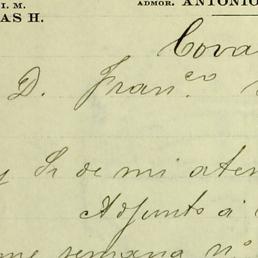 I. M.
ADMOR. ANTONIO
AS H.
Cova
D. Fran.co
y Sr de mi aten
Adjunto á
semana n.o